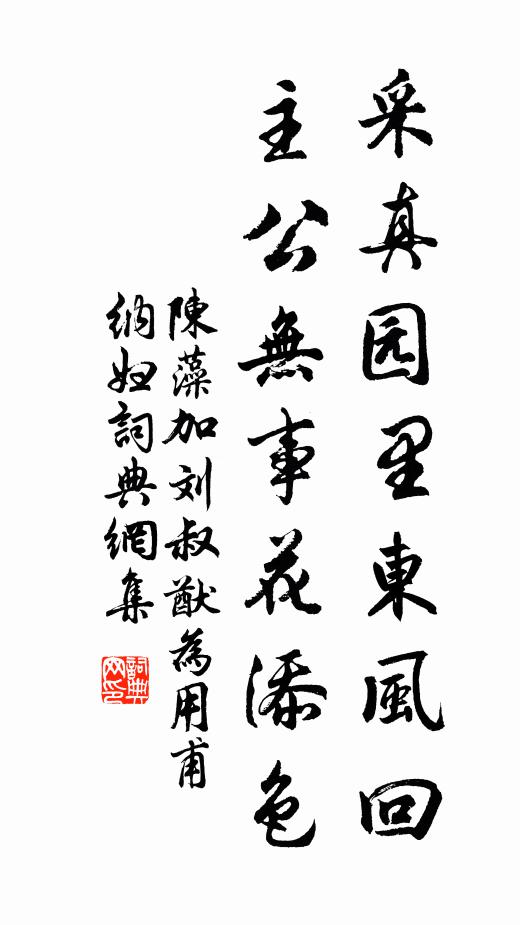 采真园里東風回
主公無事花添色
陳藻加刘叔猷為用甫
納妇詞典網集
詞典網印